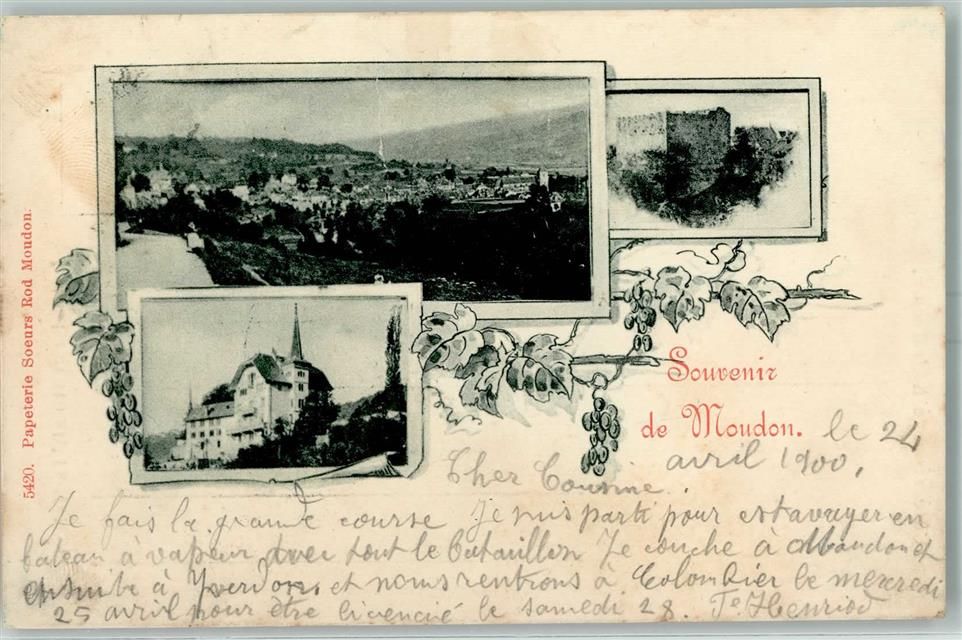 5420. Papeterie Soeurs Rod Moudon.
Souvenir
de Moudon.
le 24
avril 1900,
Cher Cousine.
Je fais la grande course Je suis parti pour estavayer en
bateau à vapeur avec tout le bataillon Je couche à Moudon et
ensuite à Yverdon, et nous rentrons à Colombier le mercredi
25 avril pour être licencié le samedi 28. Te Henriod